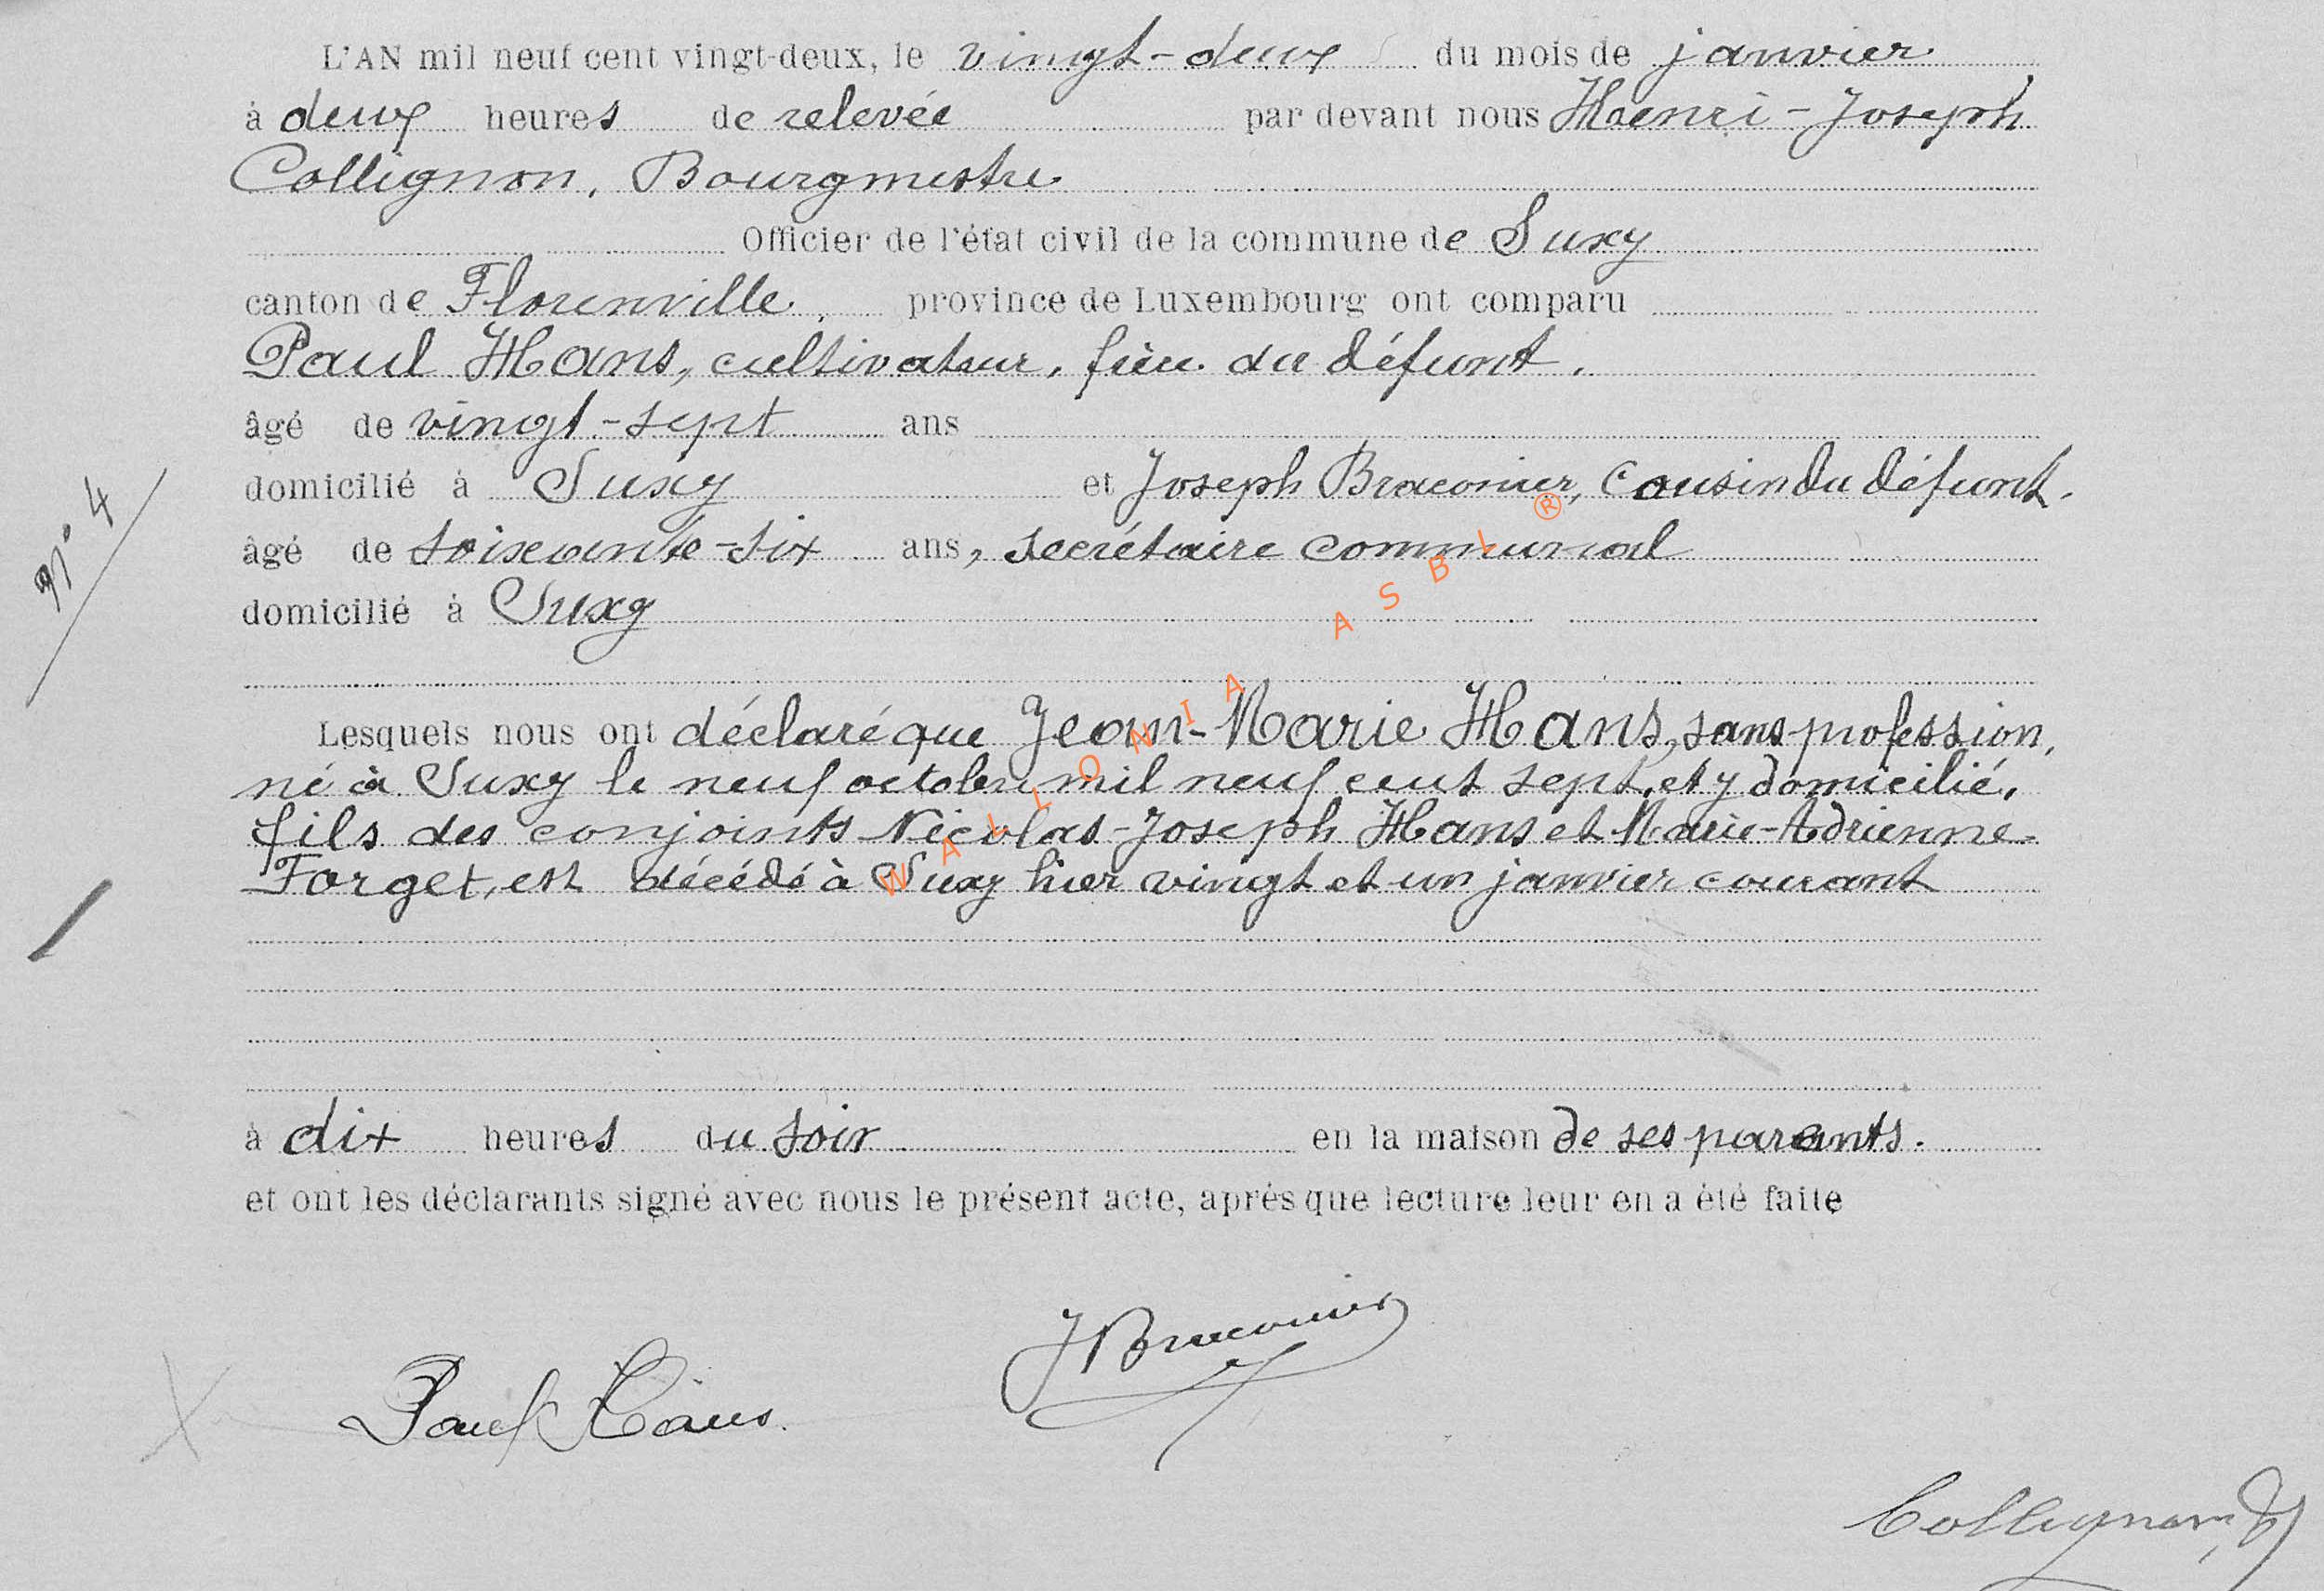 L'AN mil neuf cent vingt-deux, le vingt-deux du mois de janvier
à deux heures de relevée par devant nous Henri-Joseph
Collignon, Bourgmestre
Officier de l'état civil de la commune de Suxy
canton de Florenville, province de Luxembourg ont comparu
Paul Hans, cultivateur, frère du défunt,
âgé de vingt-sept ans
domicilié à Suxy et Joseph Braconier, cousin du défunt,
âgé de soixante-six ans, secrétaire communal
domicilié à Suxy
N° 4
Lesquels nous ont déclaré que Jean-Marie Hans, sans profession,
né à Suxy le neuf octobre mil neuf cent sept, et y domicilié,
fils des conjoints Nicolas-Joseph Hans et Marie-Adrienne
Forget, est décédé à Suxy hier vingt et un janvier courant
à dix heures du soir en la maison de ses parents.
et ont les déclarants signé avec nous le présent acte, après que lecture leur en a été faite
JBraconier
Paul Hans.
Collignon
WALLONIA ASBL ®